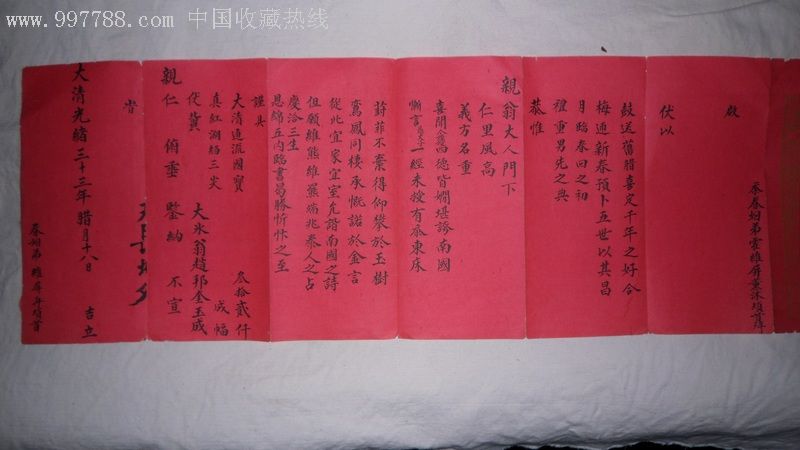 www.997788.com 中国收藏热线
啟
忝眷姻弟雲維屏熏沐頊首拜
伏以
鼓送舊腊喜定千年之好合
梅迎新春預卜五世以其昌
月臨春回之初
禮重男先之典
恭惟
親翁大人門下
仁里風高
義方名重
喜聞令愛四德皆嫺堪誇南國
慚言小兒一經未授有忝東床
葑菲不棄得仰攀於玉樹
鸞鳳同棲承慨諾於金言
從此宜家宜室允諧南國之詩
但願維熊維羆端兆泰人之占
慶洽三生
思綿五內臨書曷勝忻怵之至
謹具
大清通流國寶 叁拾貳仟
真紅湖縐三端 成幅
大冰翁趙邦奎玉成
伏冀
親仁 俯垂 鑒納 不宣
大清光緒三十三年 腊月十八日 吉立
忝姻弟 維屏再頊首